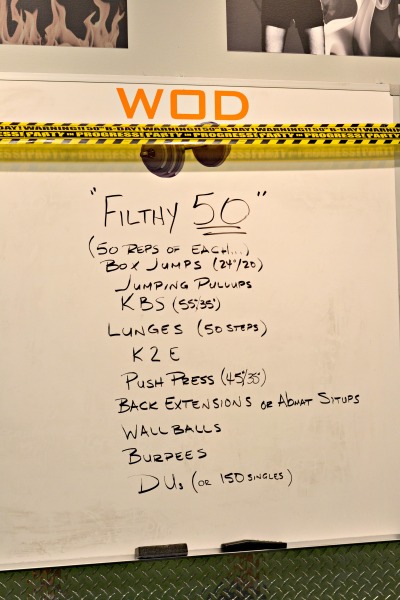 WOD
-DAY! WARNING!! 50th B-DAY! WARNING!! 50th B-DAY! WARNING!!
PARTY IN PROGRESS! PARTY IN PROGRESS! PARTY IN PROGRESS!
"FILTHY 50"
(50 REPS OF EACH...)
BOX JUMPS (24"/20)
JUMPING PULLUPS
KBS (55/35)
LUNGES (50 STEPS)
K2E
PUSH PRESS (45/35)
BACK EXTENSIONS OR ABMAT SITUPS
WALLBALLS
BURPEES
DUs (OR 150 SINGLES)